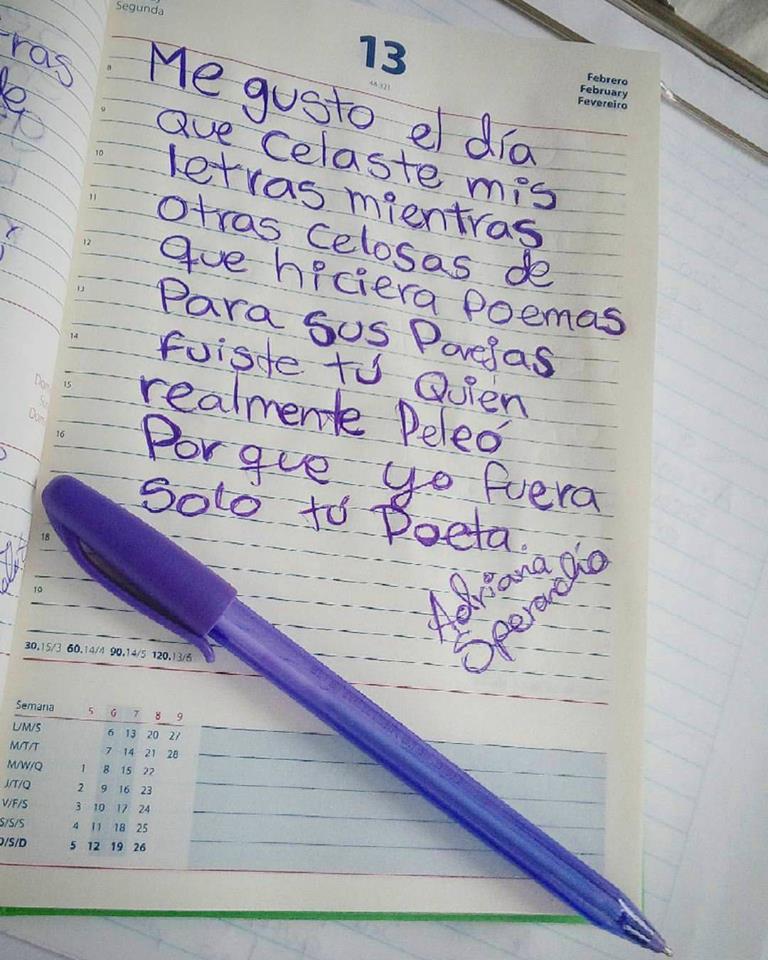 Segunda
13
44-321
Febrero
February
Fevereiro
Me gusto el día
que celaste mis
letras mientras
otras celosas de
que hiciera poemas
Para sus Parejas
fuiste tú Quien
realmente Peleó
Por que yo fuera
Solo tú Poeta.
Adriana Río
Sperandio
8
9
10
11
12
13
14
15
16
18
19
30.15/3 60.14/4 90.14/5 120.13/6
Semana 5 6 7 8 9
L/M/S 6 13 20 27
M/T/T 7 14 21 28
M/W/Q 1 8 15 22
J/T/Q 2 9 16 23
V/F/S 3 10 17 24
S/S/S 4 11 18 25
D/S/D 5 12 19 26
tras